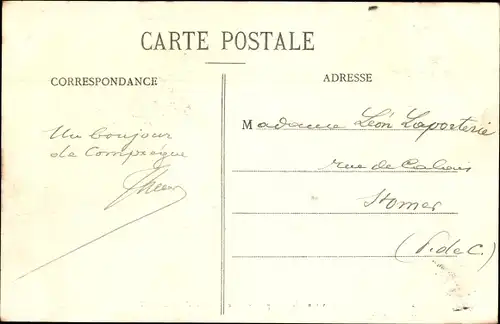 CARTE POSTALE
CORRESPONDANCE
ADRESSE
Un bonjour
de Compiègne
Madame Léon Laporterie
rue de Calais
St Omer
(P. de C.)